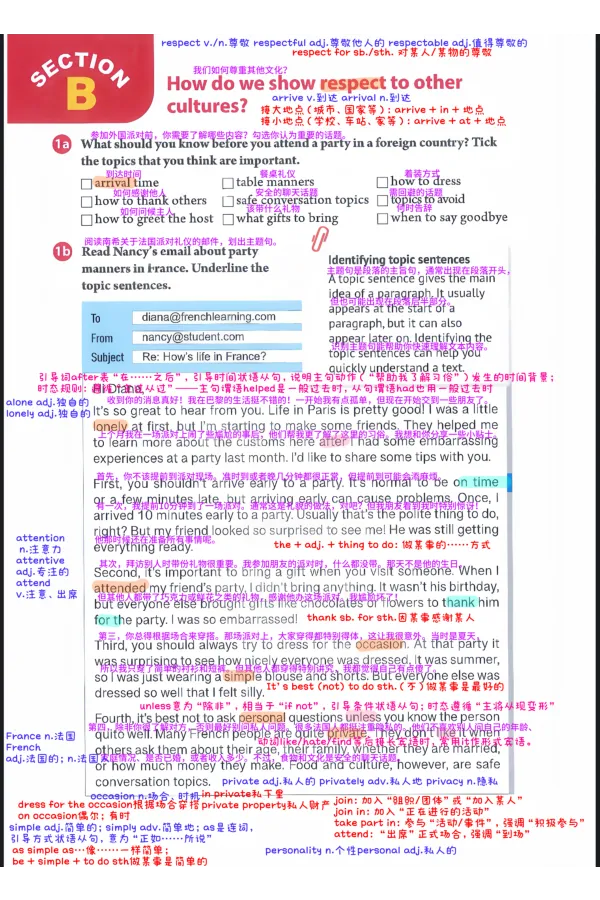 respect v./n.尊敬 respectful adj.尊敬他人的 respectable adj.值得尊敬的
respect for sb./sth. 对某人/某物的尊敬
SECTION
B
我们如何尊重其他文化?
How do we show respect to other
cultures?
arrive v.到达 arrival n.到达
接大地点(城市、国家等): arrive + in + 地点
接小地点(学校、车站、家等): arrive + at + 地点
参加外国派对前,你需要了解哪些内容?勾选你认为重要的话题。
1a What should you know before you attend a party in a foreign country? Tick
the topics that you think are important.
到达时间 餐桌礼仪 着装方式
arrival time table manners how to dress
如何感谢他人 安全的聊天话题 需回避的话题
how to thank others safe conversation topics topics to avoid
如何问候主人 该带什么礼物 何时告辞
how to greet the host what gifts to bring when to say goodbye
阅读南希关于法国派对礼仪的邮件,划出主题句。
1b Read Nancy's email about party
manners in France. Underline the
topic sentences.
To diana@frenchlearning.com
From nancy@student.com
Subject Re: How's life in France?
Identifying topic sentences
主题句是段落的主旨句,通常出现在段落开头,
A topic sentence gives the main
idea of a paragraph. It usually
但也可能出现在段落后半部分。
appears at the start of a
paragraph, but it can also
appear later on. Identifying the
识别主题句能帮助你快速理解文本内容。
topic sentences can help you
quickly understand a text.
引导词after表“在……之后”,引导时间状语从句,说明主句动作(“帮助我了解习俗”)发生的时间背景;
时态规则:遵循“主过从过”——主句谓语helped是一般过去时,从句谓语had也用一般过去时
收到你的消息真好!我在巴黎的生活挺不错的!一开始我有点孤单,但现在开始交到一些朋友了。
alone adj.独自的
lonely adj.独自的
It's so great to hear from you. Life in Paris is pretty good! I was a little
lonely at first, but I'm starting to make some friends. They helped me
上个月我在一场派对上闹了些尴尬的事后,他们帮我更了解了这里的习俗。我想和你分享一些小贴士。
to learn more about the customs here after I had some embarrassing
experiences at a party last month. I'd like to share some tips with you.
首先,你不该提前到派对现场。准时到或者晚几分钟都很正常,但提前到可能会添麻烦。
First, you shouldn't arrive early to a party. It's normal to be on time
or a few minutes late, but arriving early can cause problems. Once, I
有一次,我提前10分钟到了一场派对。通常这是礼貌的做法,对吧?但我朋友看到我时特别惊讶!
arrived 10 minutes early to a party. Usually that's the polite thing to do,
right? But my friend looked so surprised to see me! He was still getting
他那时候还在准备所有事情呢。
everything ready.
the + adj. + thing to do: 做某事的……方式
attention
n.注意力
attentive
adj.专注的
attend
v.注意、出席
其次,拜访别人时带份礼物很重要。我参加朋友的派对时,什么都没带。那天不是他的生日,
Second, it's important to bring a gift when you visit someone. When I
attended my friend's party, I didn't bring anything. It wasn't his birthday,
但其他人都带了巧克力或鲜花之类的礼物,感谢他办这场派对。我尴尬坏了!
but everyone else brought gifts like chocolates or flowers to thank him
for the party. I was so embarrassed!
thank sb. for sth.因某事感谢某人
第三,你总得根据场合来穿搭。那场派对上,大家穿得都特别得体,这让我很意外。当时是夏天,
Third, you should always try to dress for the occasion. At that party it
was surprising to see how nicely everyone was dressed. It was summer,
所以我只穿了简单的衬衫和短裤。但其他人都穿得特别讲究,我都觉得自己有点傻了。
so I was just wearing a simple blouse and shorts. But everyone else was
dressed so well that I felt silly.
It's best (not) to do sth.(不)做某事是最好的
unless意为“除非”,相当于“if not”,引导条件状语从句;时态遵循“主将从现变形”
Fourth, it's best not to ask personal questions unless you know the person
第四,除非你很了解对方,否则最好别问私人问题。很多法国人都挺注重隐私的。他们不喜欢别人问自己的年龄、
quite well. Many French people are quite private. They don't like it when
动词like/hate/find等后接长宾语时,常用it作形式宾语。
others ask them about their age, their family, whether they are married,
France n.法国
French
adj.法国的; n.法国人
家庭情况、是否已婚,或者收入多少。不过,食物和文化是安全的聊天话题。
or how much money they make. Food and culture, however, are safe
conversation topics.
private adj.私人的 privately adv.私人地 privacy n.隐私
occasion n.场合,时机 in private私下里
dress for the occasion根据场合穿搭 private property私人财产
on occasion偶尔;有时
simple adj.简单的; simply adv.简单地; as是连词,
引导方式状语从句,意为“正如……所说”
as simple as…像……一样简单;
be + simple + to do sth做某事是简单的
join: 加入“组织/团体”或“加入某人”
join in: 加入“正在进行的活动”
take part in: 参与“活动/事件”,强调“积极参与”
attend: “出席”正式场合,强调“到场”
personality n.个性 personal adj.私人的